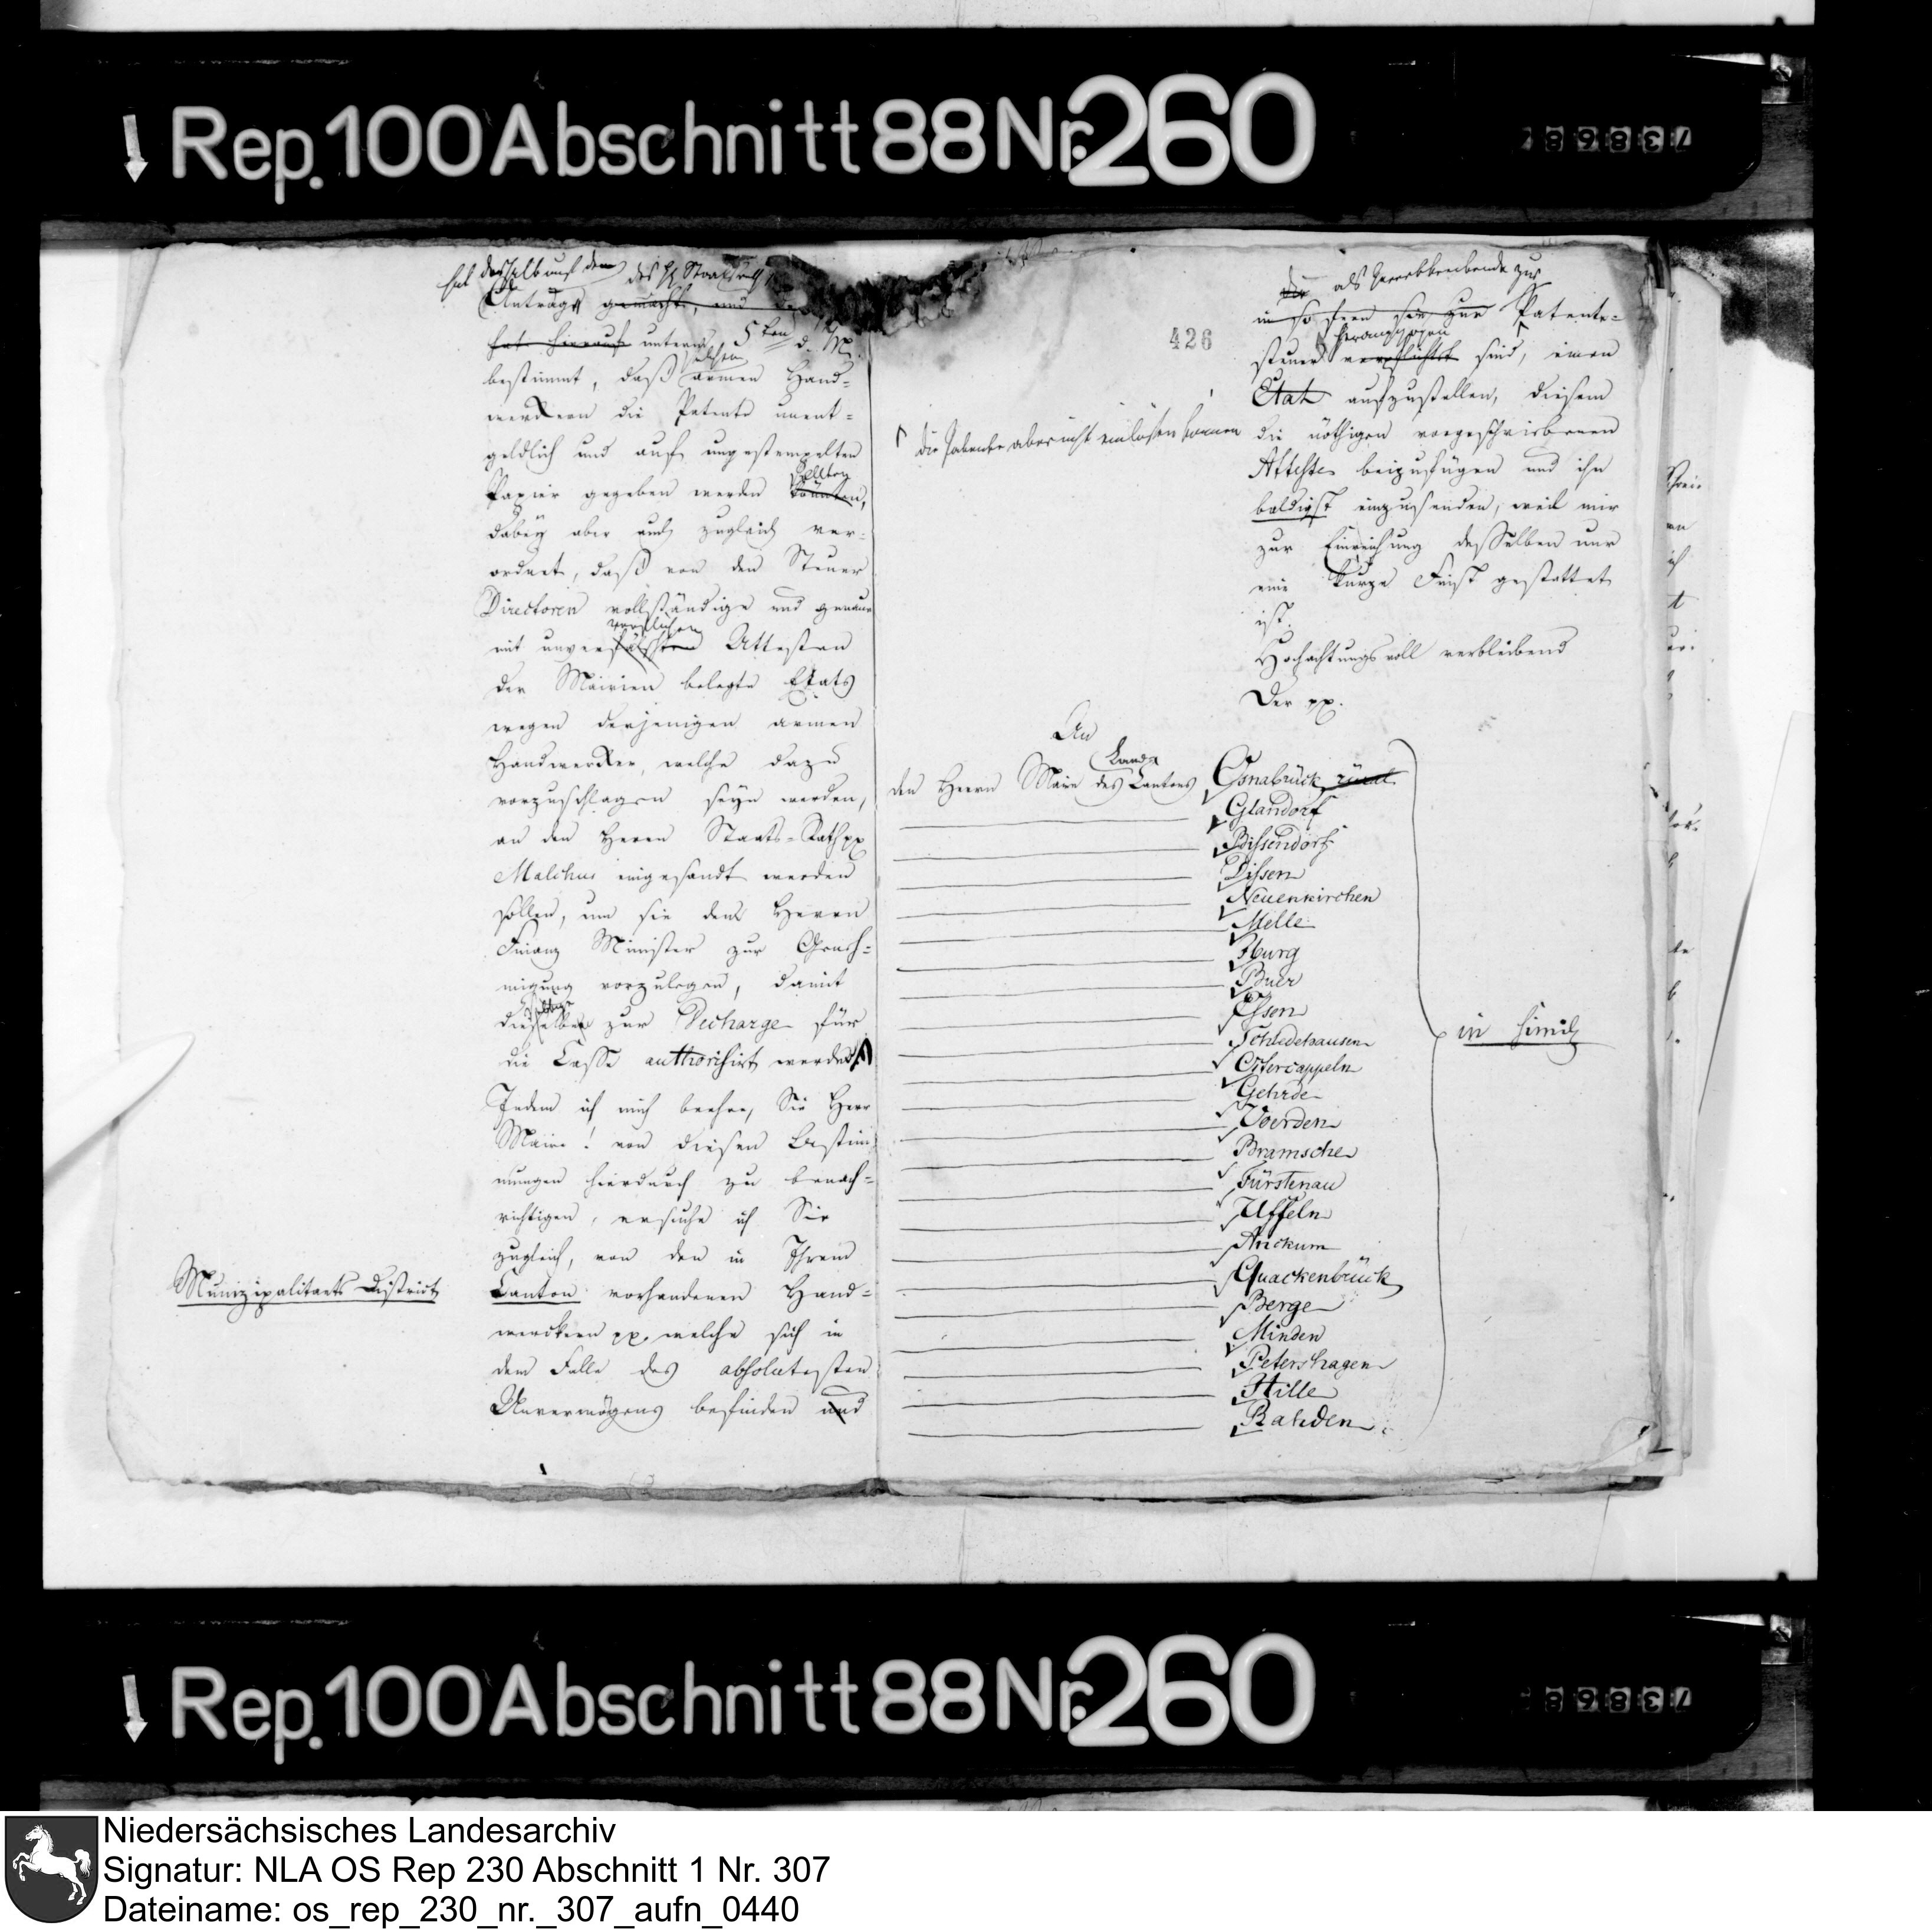 Rep. 100 Abschnitt 88 Nr. 260
738687
hat deshalb auf den des H. Staatsraths
Antrag gemacht, und
hat hierauf unterm 5ten d. M.
bestimmt, daß solchen armen Hand-
werkern die Patente unent-
geldlich und auf ungestempelten
Papier gegeben werden sollten könnten,
dabey aber auch zugleich ver-
ordnet, daß von den Steuer
Directoren vollständige und genaue
mit unverfälschten Attesten
der Mairien belegte Etats
wegen derjenigen armen
Handwerker, welche dazu
vorzuschlagen seyn werden,
an den Herrn Staats-Rath pp
Malchus eingesandt werden
sollen, um sie dem Herrn
Finanz Minister zur Geneh-
migung vorzulegen, damit
dieselben zur Decharge für
die Casse authorisirt werden
Indem ich mich beehre, Sie Herr
Maire! von diesen Bestim-
mungen hierdurch zu benach-
richtigen, ersuche ich Sie
zugleich, von den in Ihrem
Munizipalitaets District
Canton vorhandenen Hand-
werckern pp. welche sich in
dem Falle des absolutesten
Unvermögens befinden und
426
die als Gewerbtreibende zur
in so fern sie zur Patent-
steuer herangezogen verpflichtet sind, einen
die Patente aber nicht einlösen können
Etat aufzustellen, diesem
die nöthigen vorgeschriebenen
Atteste beizufügen und ihn
baldigst einzusenden, weil mir
zur Einreichung desselben nur
eine kurze Frist gestattet
ist.
Hochachtungsvoll verbleibend
Der pp.
An
den Herrn Maire des Cantons Land Osnabrück rural
Glandorf
Bissendorf
Dissen
Neuenkirchen
Melle
Iburg
Buer
Essen
Schledehausen
Ostercappeln
Gehrde
Voerden
Bramsche
Fürstenau
Uffeln
Anckum
Quackenbrück
Berge
Minden
Petershagen
Hille
Rahden
in simili
Rep. 100 Abschnitt 88 Nr. 260
738687
Niedersächsisches Landesarchiv
Signatur: NLA OS Rep 230 Abschnitt 1 Nr. 307
Dateiname: os_rep_230_nr._307_aufn_0440